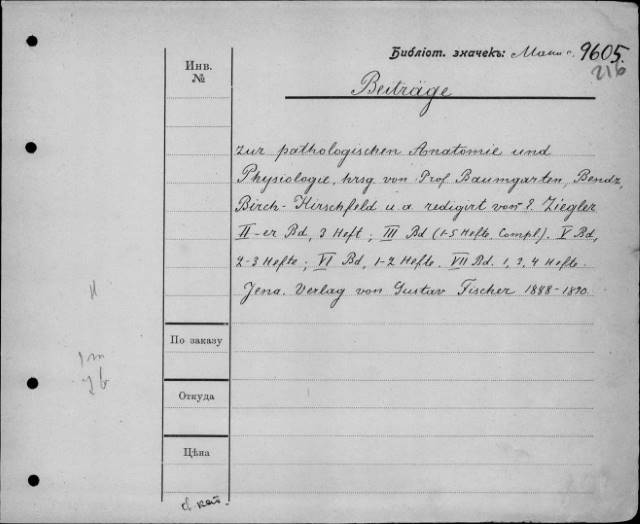 Библіот. значекъ: 9605.
216
Инв.
№
Beiträge
zur pathologischen Anatomie und
Physiologie, hrsg. von Prof. Baumgarten, Bendz,
Birch-Hirschfeld u. a. redigirt von E. Ziegler
II-er Bd, 3 Heft; III Bd (1-5 Hefte. Compl.). V Bd,
2-3 Hefte; VI Bd, 1-2 Hefte. VII Bd. 1, 3, 4 Hefte.
Jena. Verlag von Gustav Fischer 1888-1890
По заказу
Откуда
Цѣна